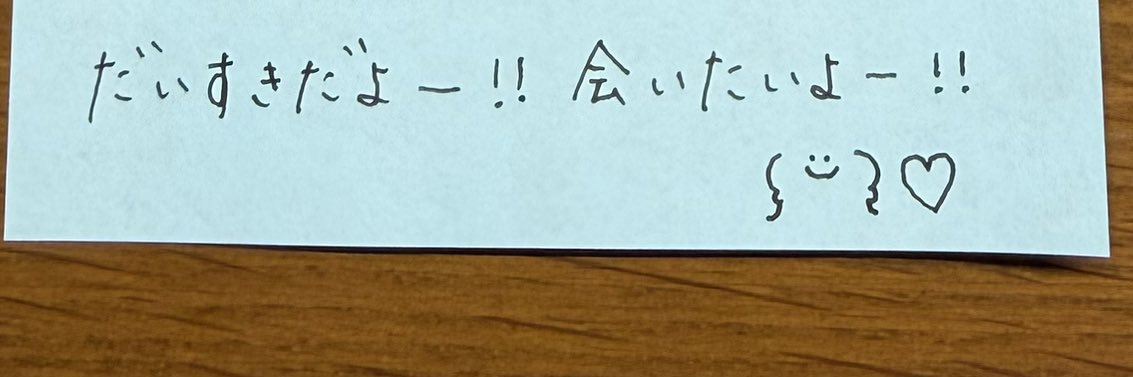 だいすきだよー!! 会いたいよー!!